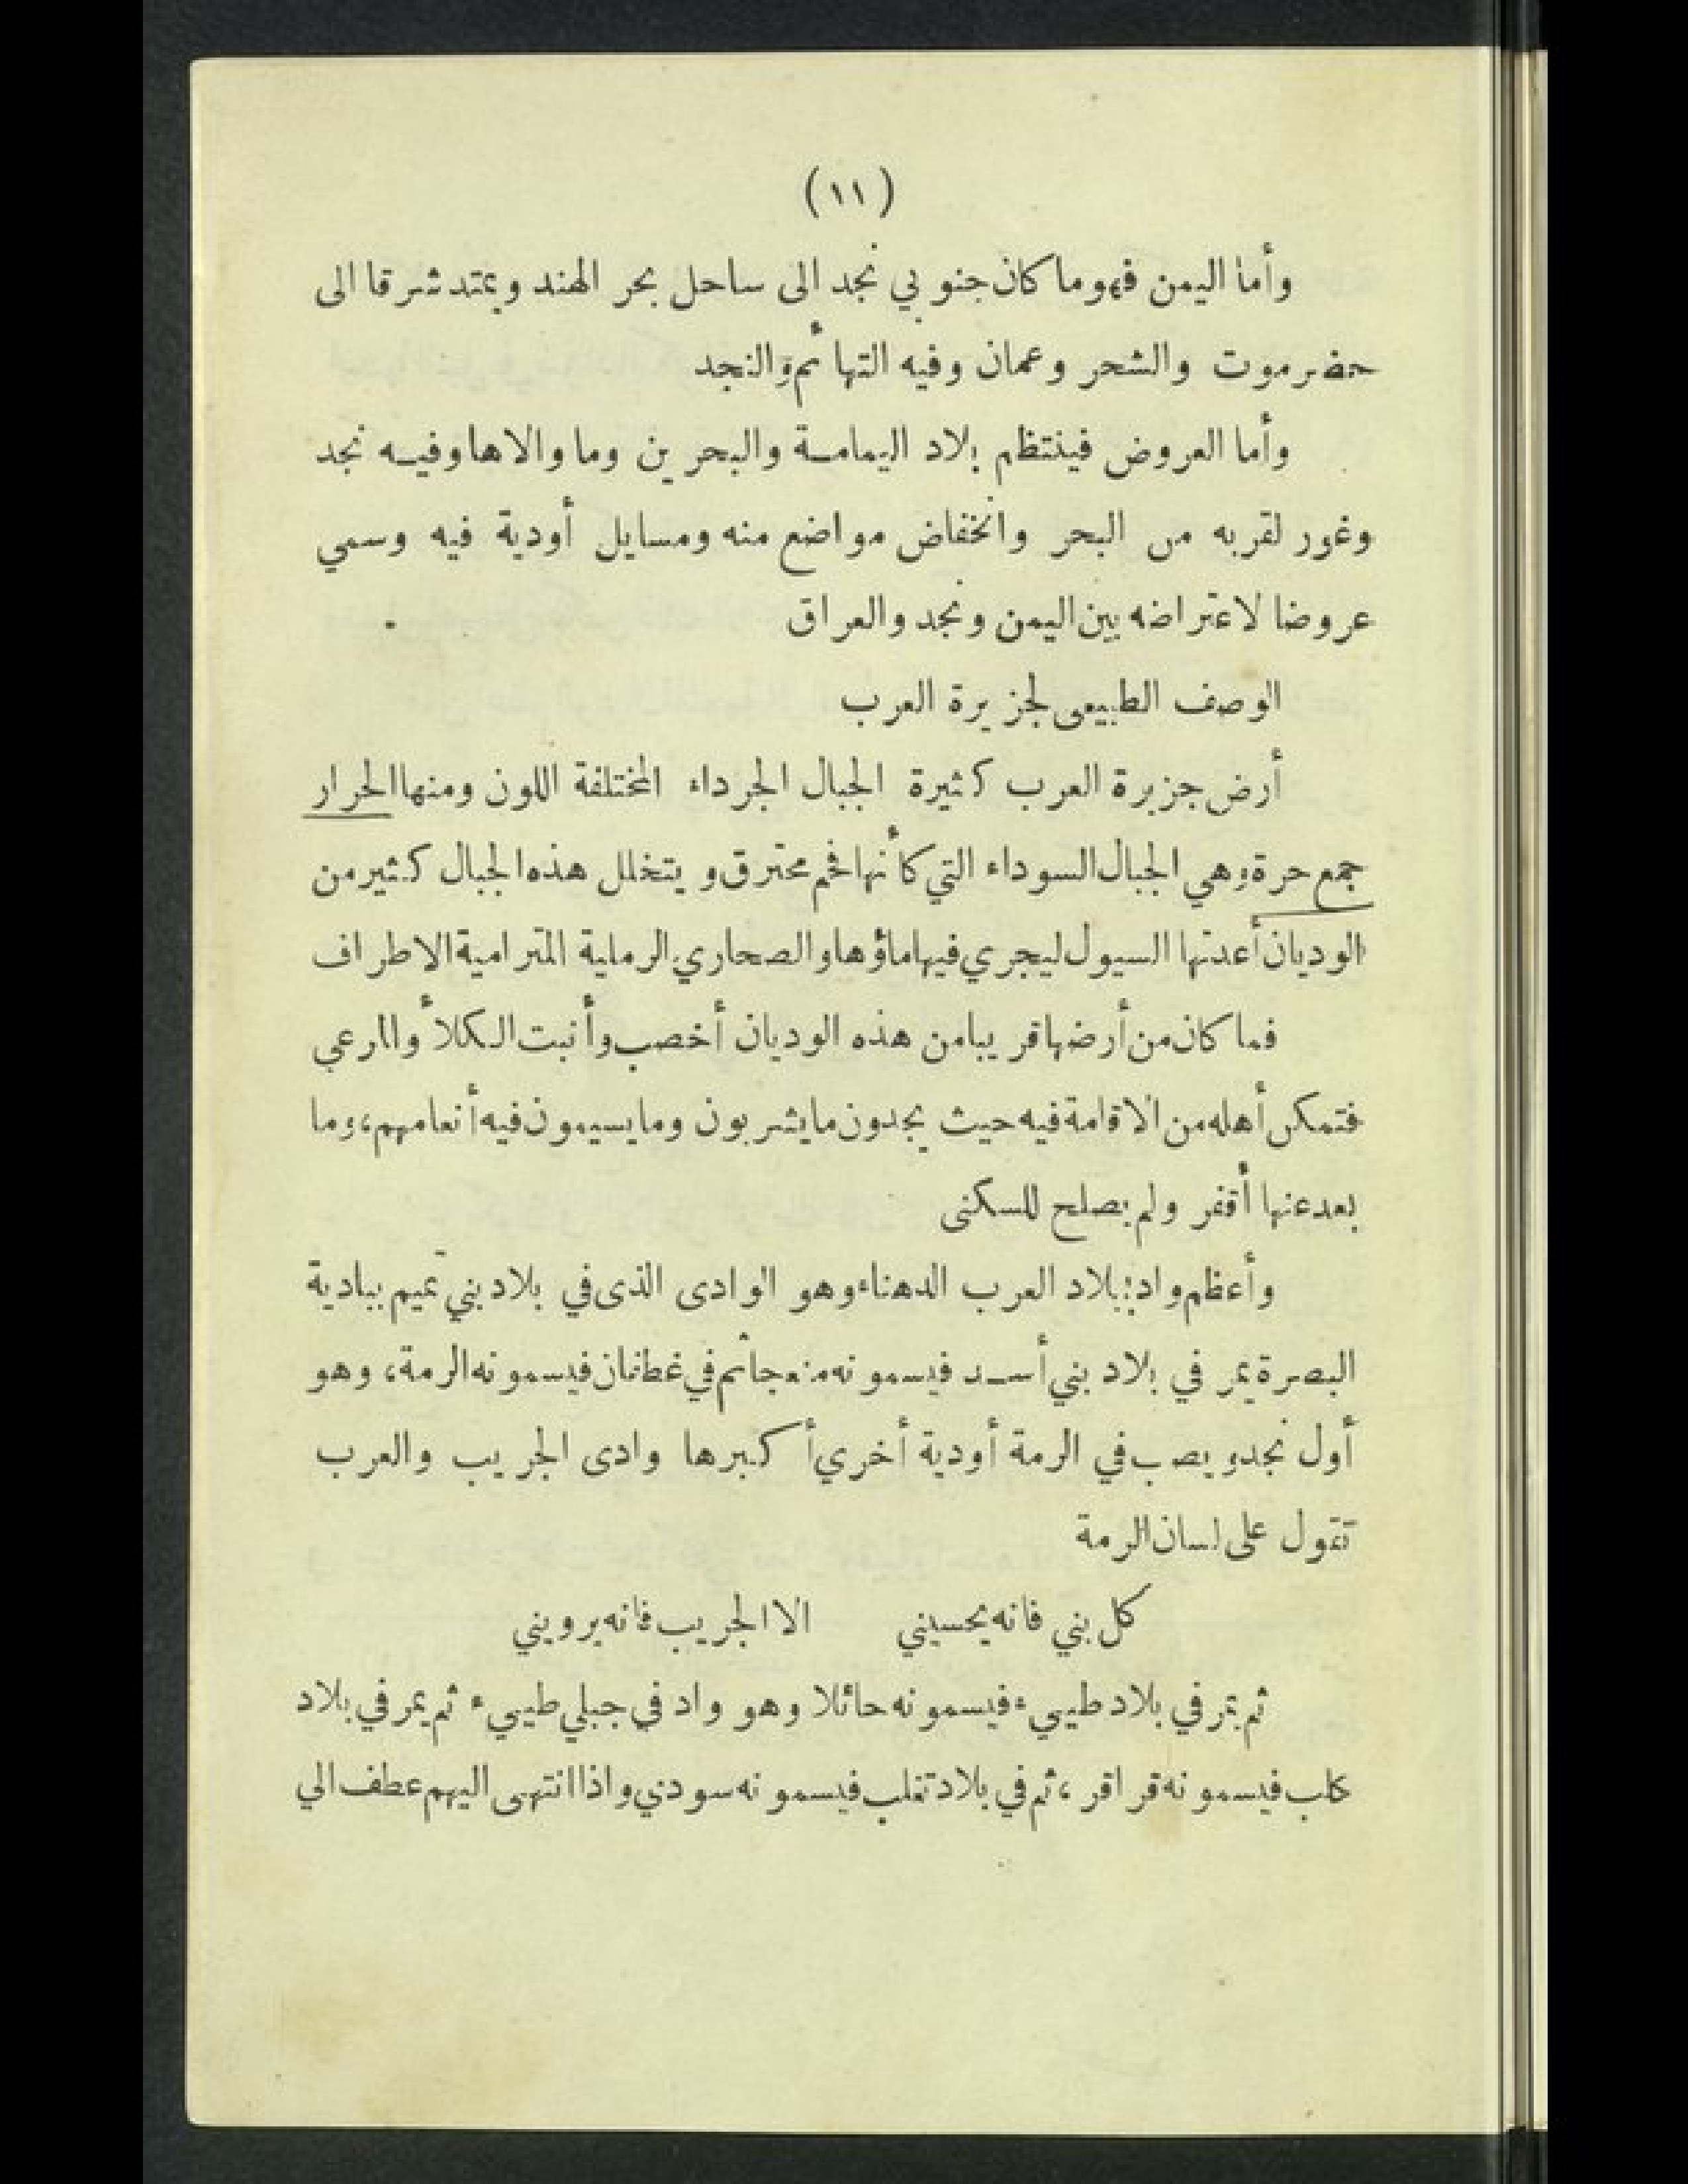 (١١)
وأما اليمن فهو ما كان جنوبي نجد الى ساحل بحر الهند ويمتد شرقا الى
حضرموت والشحر وعمان وفيه التهائم والنجد
وأما العروض فينتظم بلاد اليمامة والبحرين وما والاها وفيه نجد
وغور لقربه من البحر وانخفاض مواضع منه ومسايل أودية فيه وسمي
عروضا لاعتراضه بين اليمن ونجد والعراق
الوصف الطبيعي لجزيرة العرب
أرض جزيرة العرب كثيرة الجبال الجرداء المختلفة اللون ومنها الحرار
جمع حرة وهي الجبال السوداء التي كأنها فحم محترق ويتخلل هذه الجبال كثير من
الوديان أعدتها السيول ليجري فيها ماؤها والصحاري الرملية المترامية الاطراف
فما كان من أرضها قريبا من هذه الوديان أخصب وأنبت الكلأ والمرعي
فتمكن أهله من الاقامة فيه حيث يجدون ما يشربون وما يسيمون فيه أنعامهم، وما
بعد عنها أقفر ولم يصلح للسكنى
وأعظم واد ببلاد العرب الدهناء وهو الوادى الذى في بلاد بني تميم ببادية
البصرة يمر في بلاد بني أسد فيسمونه منعجا ثم في غطفان فيسمونه الرمة، وهو
أول نجد ويصب في الرمة أودية أخري أكبرها وادى الجريب والعرب
تقول على لسان الرمة
كل بني فانه يحسيني الا الجريب فانه يرويني
ثم يمر في بلاد طيىء فيسمونه حائلا وهو واد في جبلي طيىء ثم يمر في بلاد
كلب فيسمونه قراقر، ثم في بلاد تغلب فيسمونه سودي واذا انتهى اليهم عطف الي